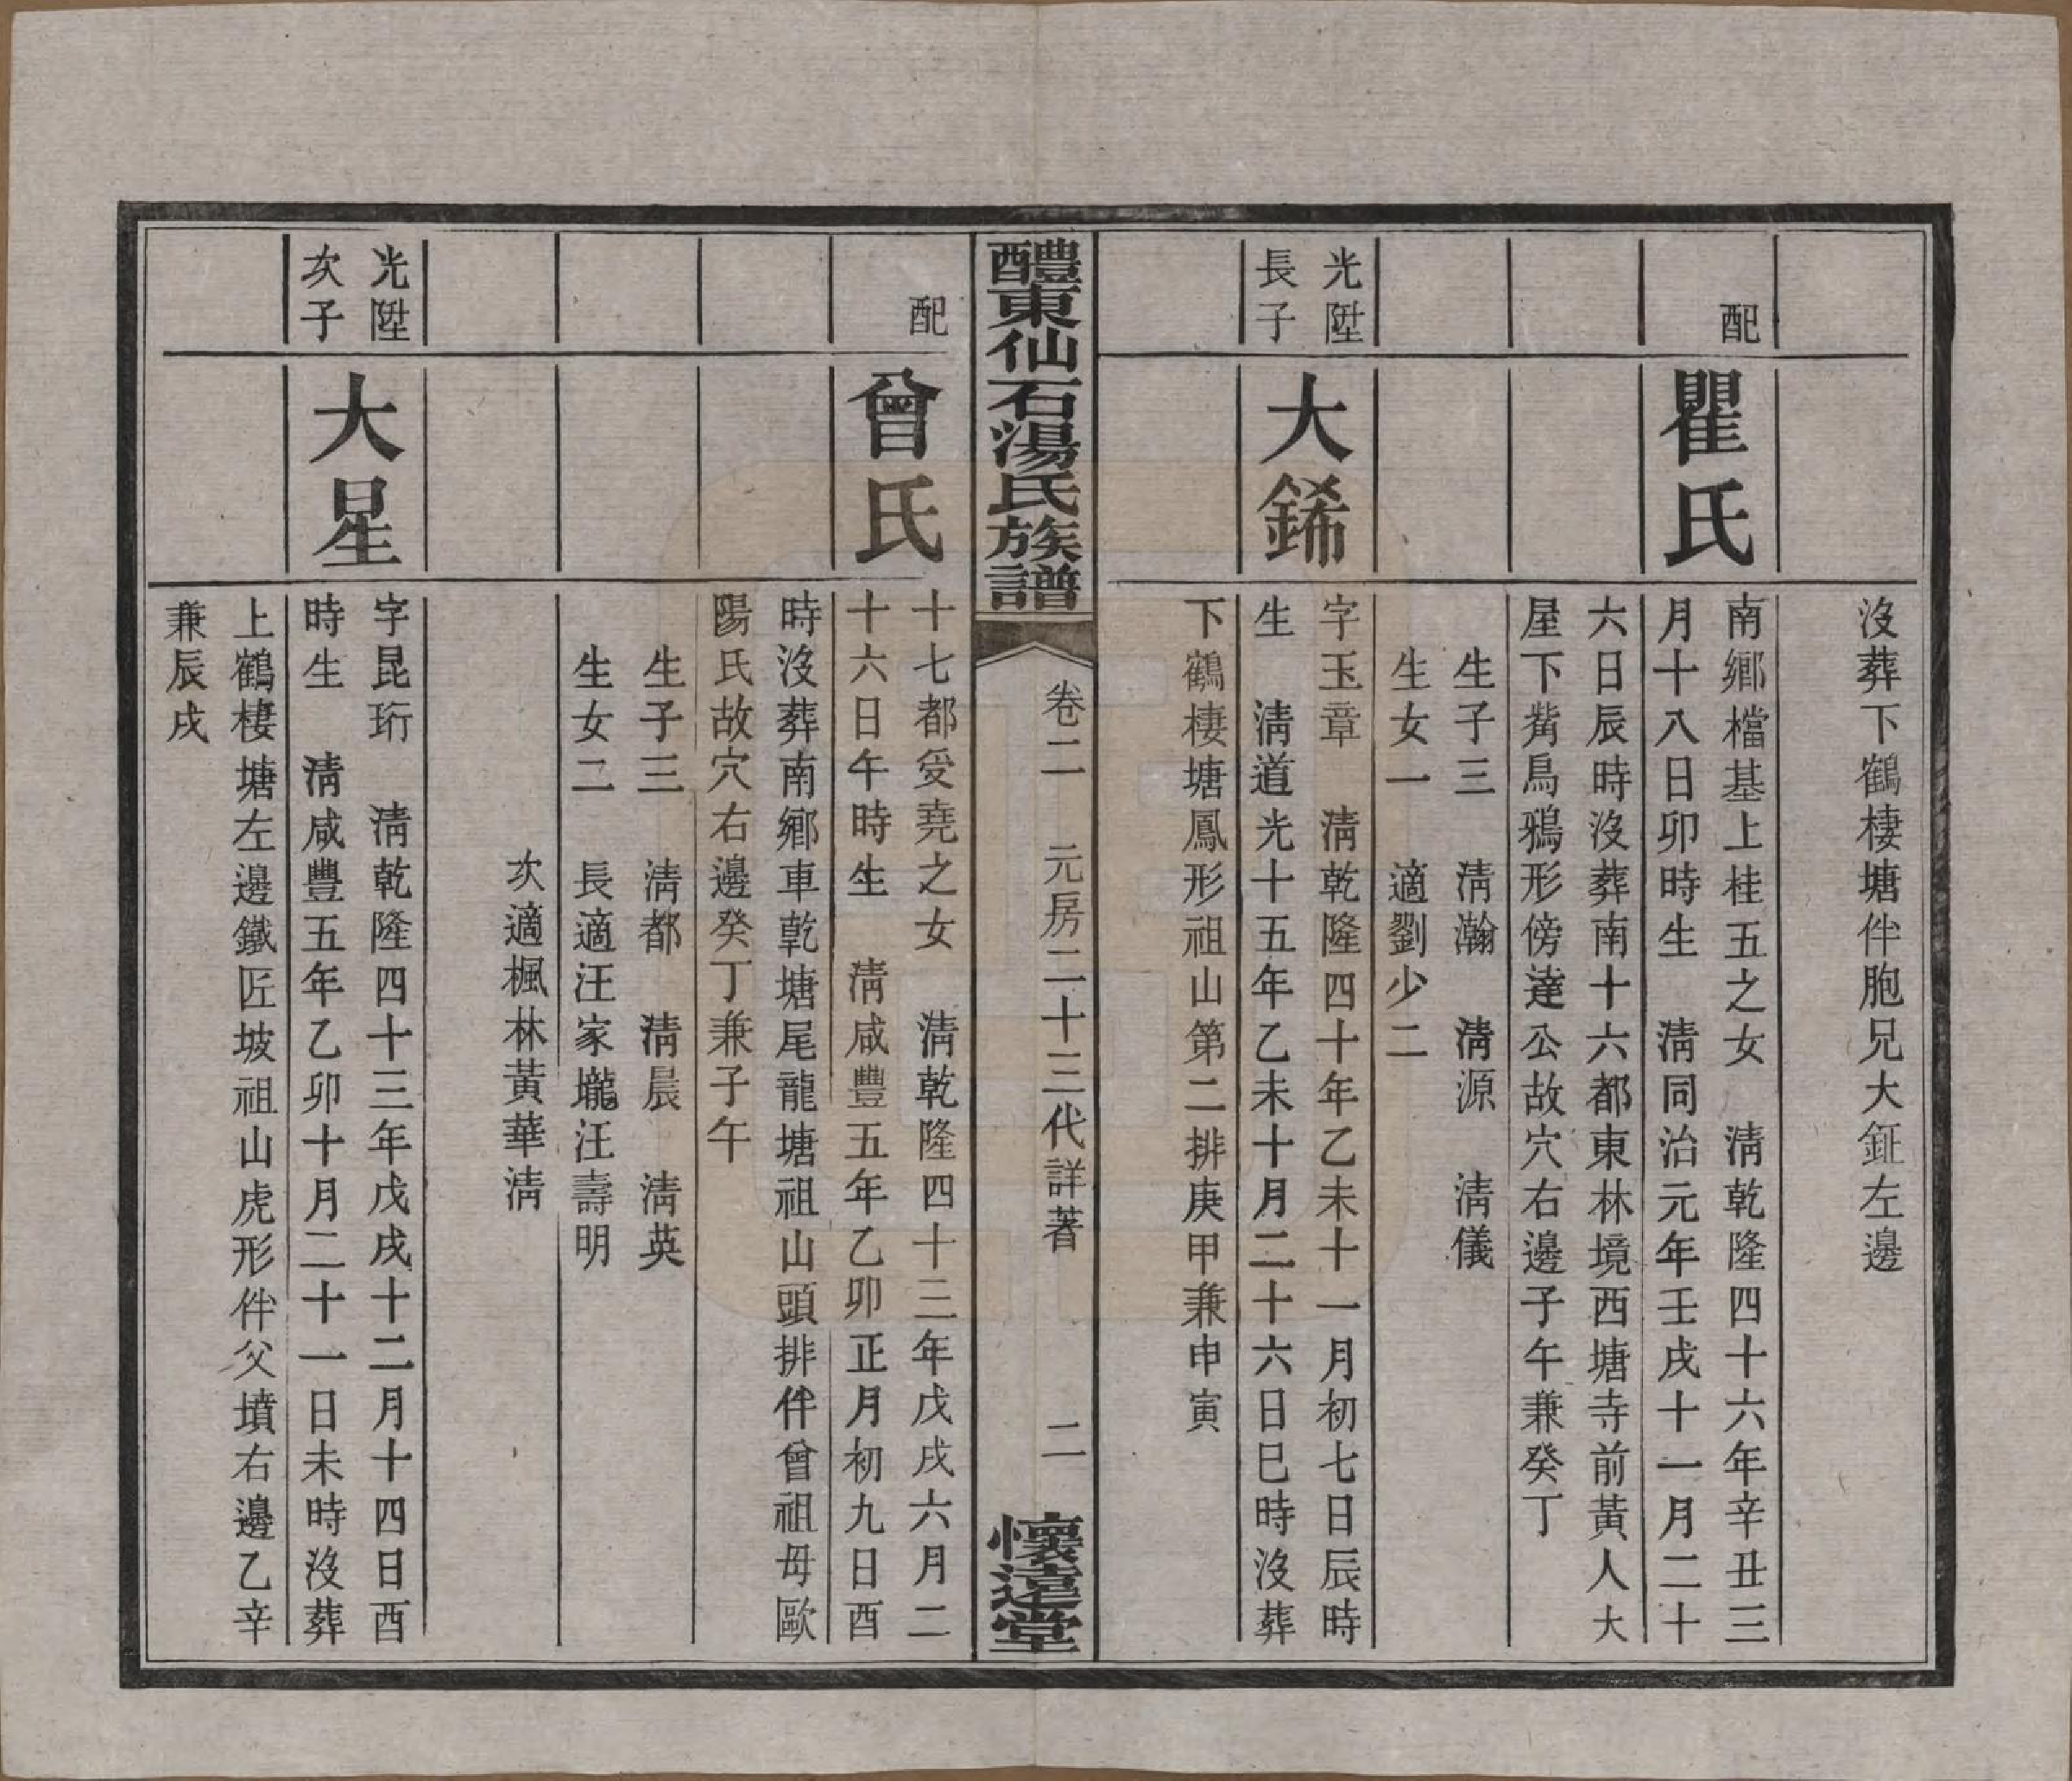 沒葬下鶴棲塘伴胞兄大鉦左邊
配
瞿氏
南鄉檔基上桂五之女　淸乾隆四十六年辛丑三
月十八日卯時生　淸同治元年壬戌十一月二十
六日辰時沒葬南十六都東林境西塘寺前黃人大
屋下觜鳥鴉形傍達公故穴右邊子午兼癸丁
生子三　淸瀚　淸源　淸儀
生女一　適劉少二
光陞
長子
大鋒
字玉章　淸乾隆四十年乙未十一月初七日辰時
生　淸道光十五年乙未十月二十六日巳時沒葬
下鶴棲塘鳳形祖山第二排庚甲兼申寅
醴東仙石湯氏族譜
卷二　元房二十三代詳著　二
懷遠堂
配
曾氏
十七都受堯之女　淸乾隆四十三年戊戌六月二
十六日午時生　淸咸豐五年乙卯正月初九日酉
時沒葬南鄉車乾塘尾龍塘祖山頭排伴曾祖母歐
陽氏故穴右邊癸丁兼子午
生子三　淸都　淸晨　淸英
生女二　長適汪家壠汪壽明
次適楓林黃華淸
光陞
次子
大星
字昆珩　淸乾隆四十三年戊戌十二月十四日酉
時生　淸咸豐五年乙卯十月二十一日未時沒葬
上鶴棲塘左邊鐵匠坡祖山虎形伴父墳右邊乙辛
兼辰戌